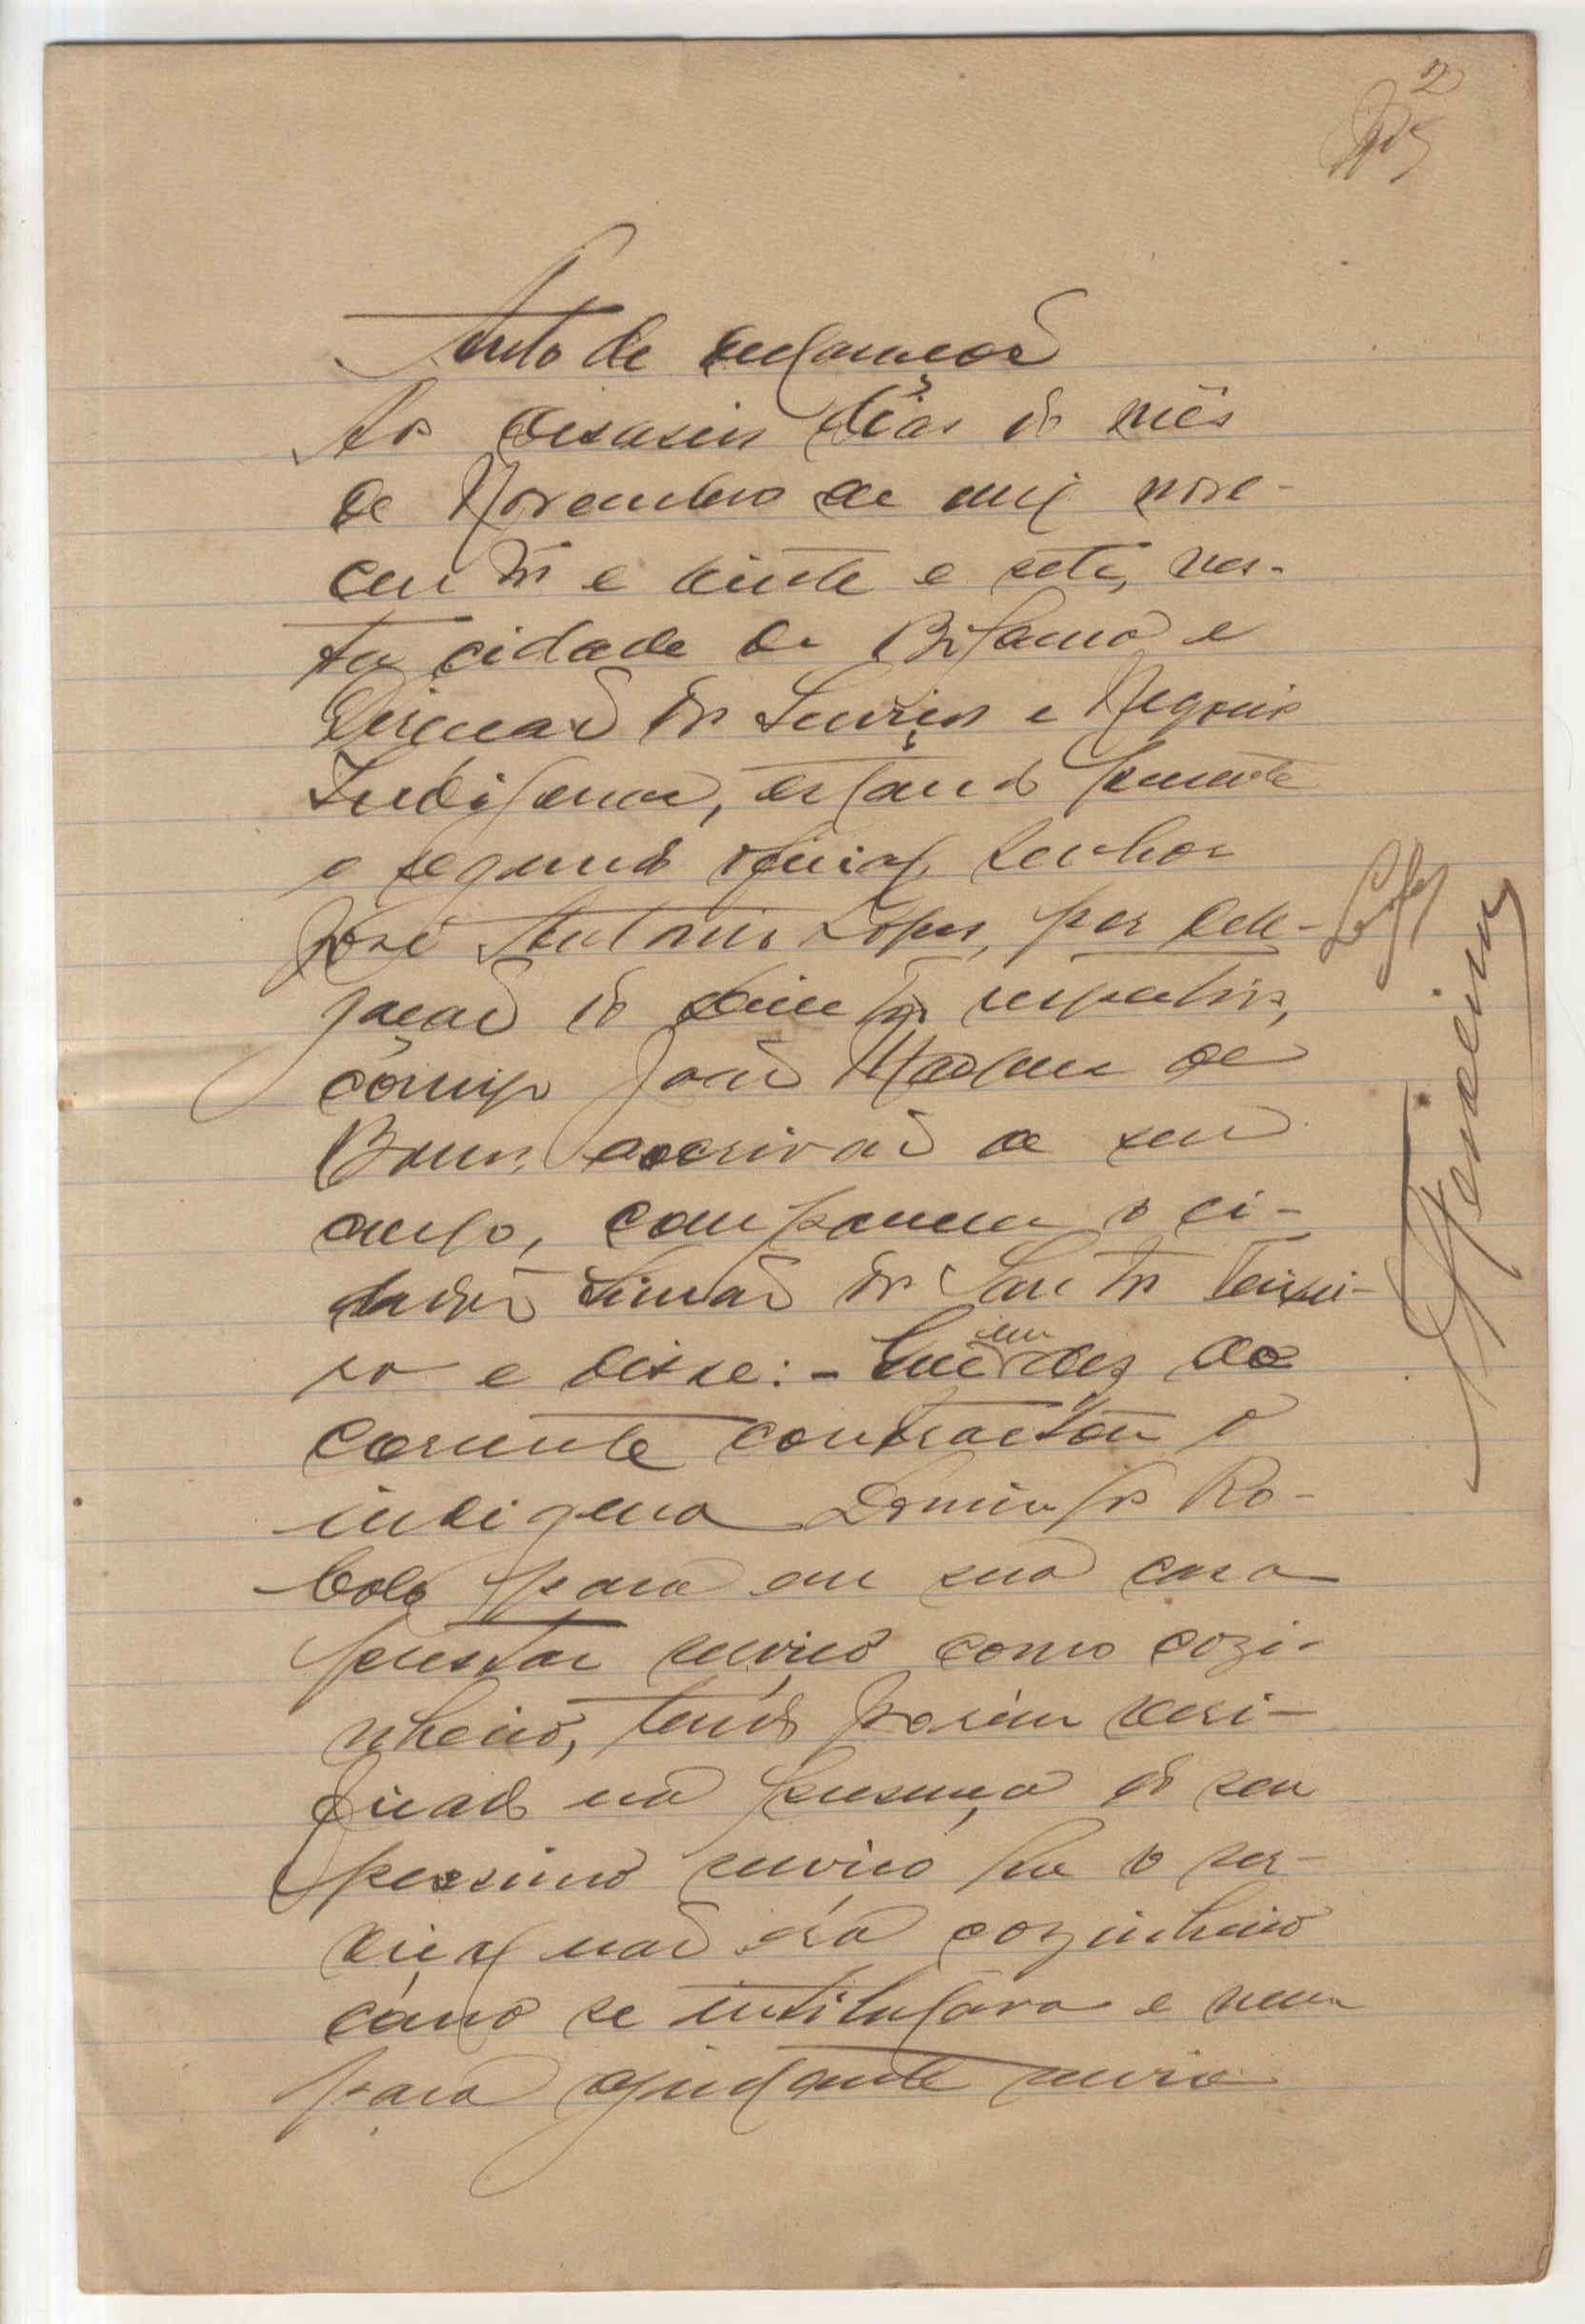 2
Auto de reclamação
Aos dezaseis dias do mês
de Novembro de mil nove-
centos e vinte e sete, nes-
ta cidade de Bolama e
Direcção dos Serviços e Negocios
Indigenas, estando presente
o segundo oficial, senhor
José Antonio Lopes, por dele-
gação do Director respectivo,
comigo João de
Barros, escrivão de seu
cargo, compareceu o ci-
dadão Simão dos Santos Teixei-
ra e disse: - Que em dez do
corrente contractou o
indigena Domingos Ro-
bolo para em sua casa
prestar serviço como cozi-
nheiro, tendo porém veri-
ficado na presença do seu
pessimo serviço que o ser-
viçal não éra cozinheiro
como se intitulára e nem
para ajudante servia
Lopes
Teixeira